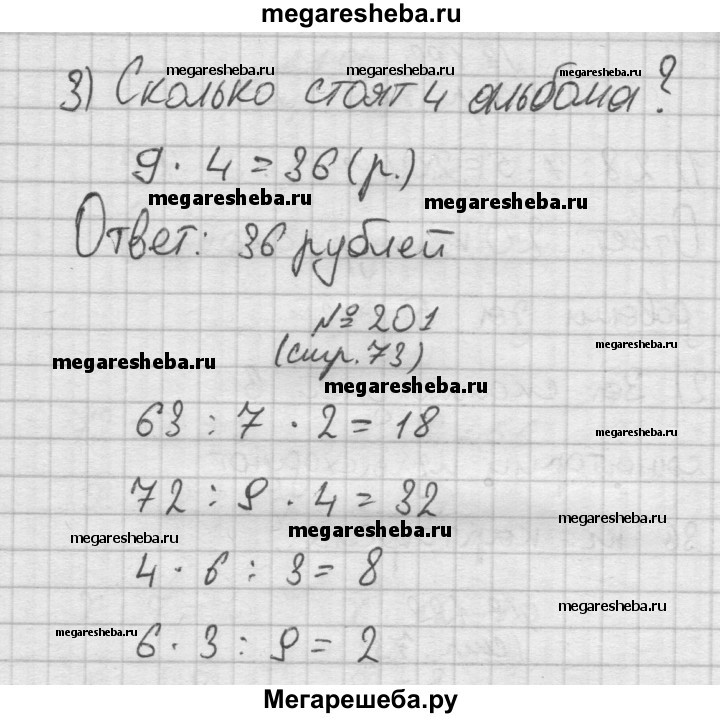 megaresheba.ru
megaresheba.ru megaresheba.ru megaresheba.ru
3) Сколько стоят 4 альбома?
9 · 4 = 36 (р.)
megaresheba.ru megaresheba.ru
Ответ: 36 рублей
№ 201
megaresheba.ru (стр. 73) megaresheba.ru
megaresheba.ru
63 : 7 · 2 = 18 megaresheba.ru
72 : 9 · 4 = 32
megaresheba.ru megaresheba.ru megaresheba.ru
4 · 6 : 3 = 8
megaresheba.ru
megaresheba.ru 6 · 3 : 9 = 2
Мегарешеба.ру